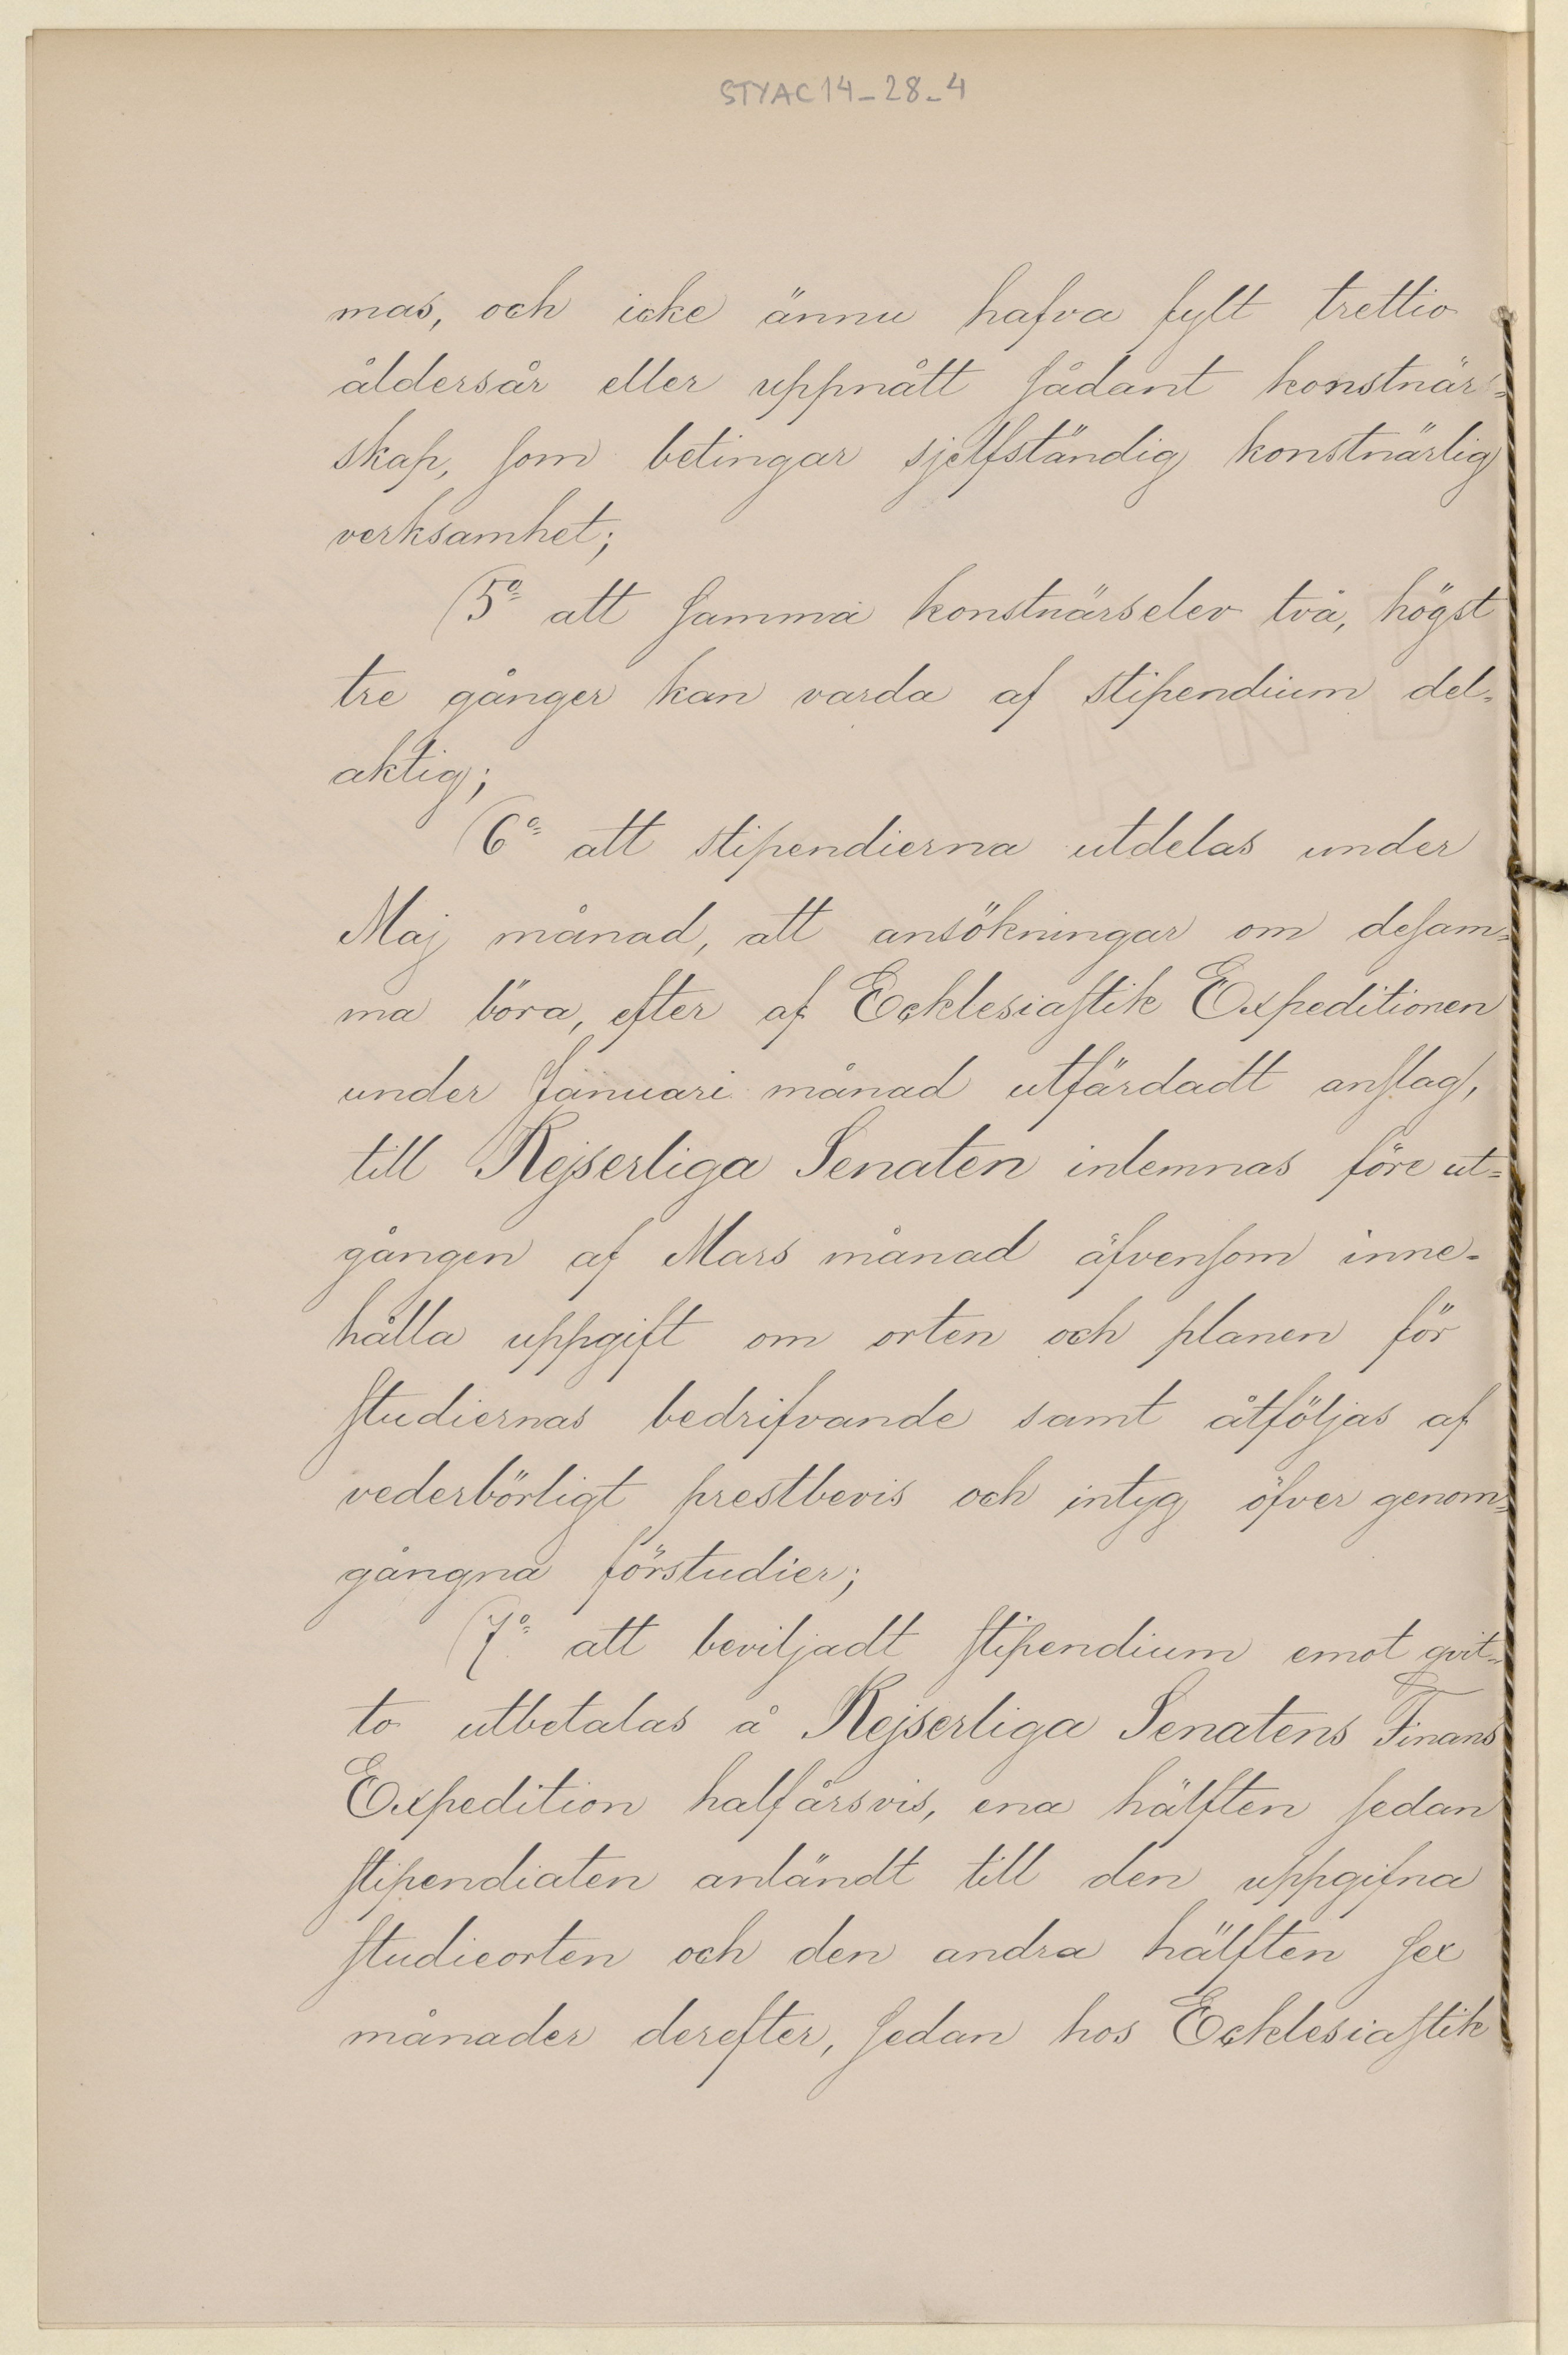 STYAC14_28_4
mas, och icke ännu hafva fylt trettio
åldersår eller uppnått sådant konstnärs-
skap, som betingar sjelfständig konstnärlig
verksamhet;
(5º att samma konstnärselev två, högst
tre gånger kan varda af stipendium del-
aktig;
(6º att stipendierna utdelas under
Maj månad, att ansökningar om desam-
ma böra, efter af Ecklesiastik Expeditionen
under Januari månad utfärdadt anslag,
till Kejserliga Senaten inlemnas före ut-
gången af Mars månad äfvensom inne-
hålla uppgift om orten och planen för
studiernas bedrifvande samt åtföljas af
vederbörligt prestbevis och intyg öfver genom-
gångna förstudier;
(7º att beviljadt stipendium emot qvit-
to utbetalas å Kejserliga Senatens Finans
Expedition halfårsvis, ena hälften sedan
stipendiaten anländt till den uppgifna
studieorten och den andra hälften sex
månader derefter, sedan hos Ecklesiastik